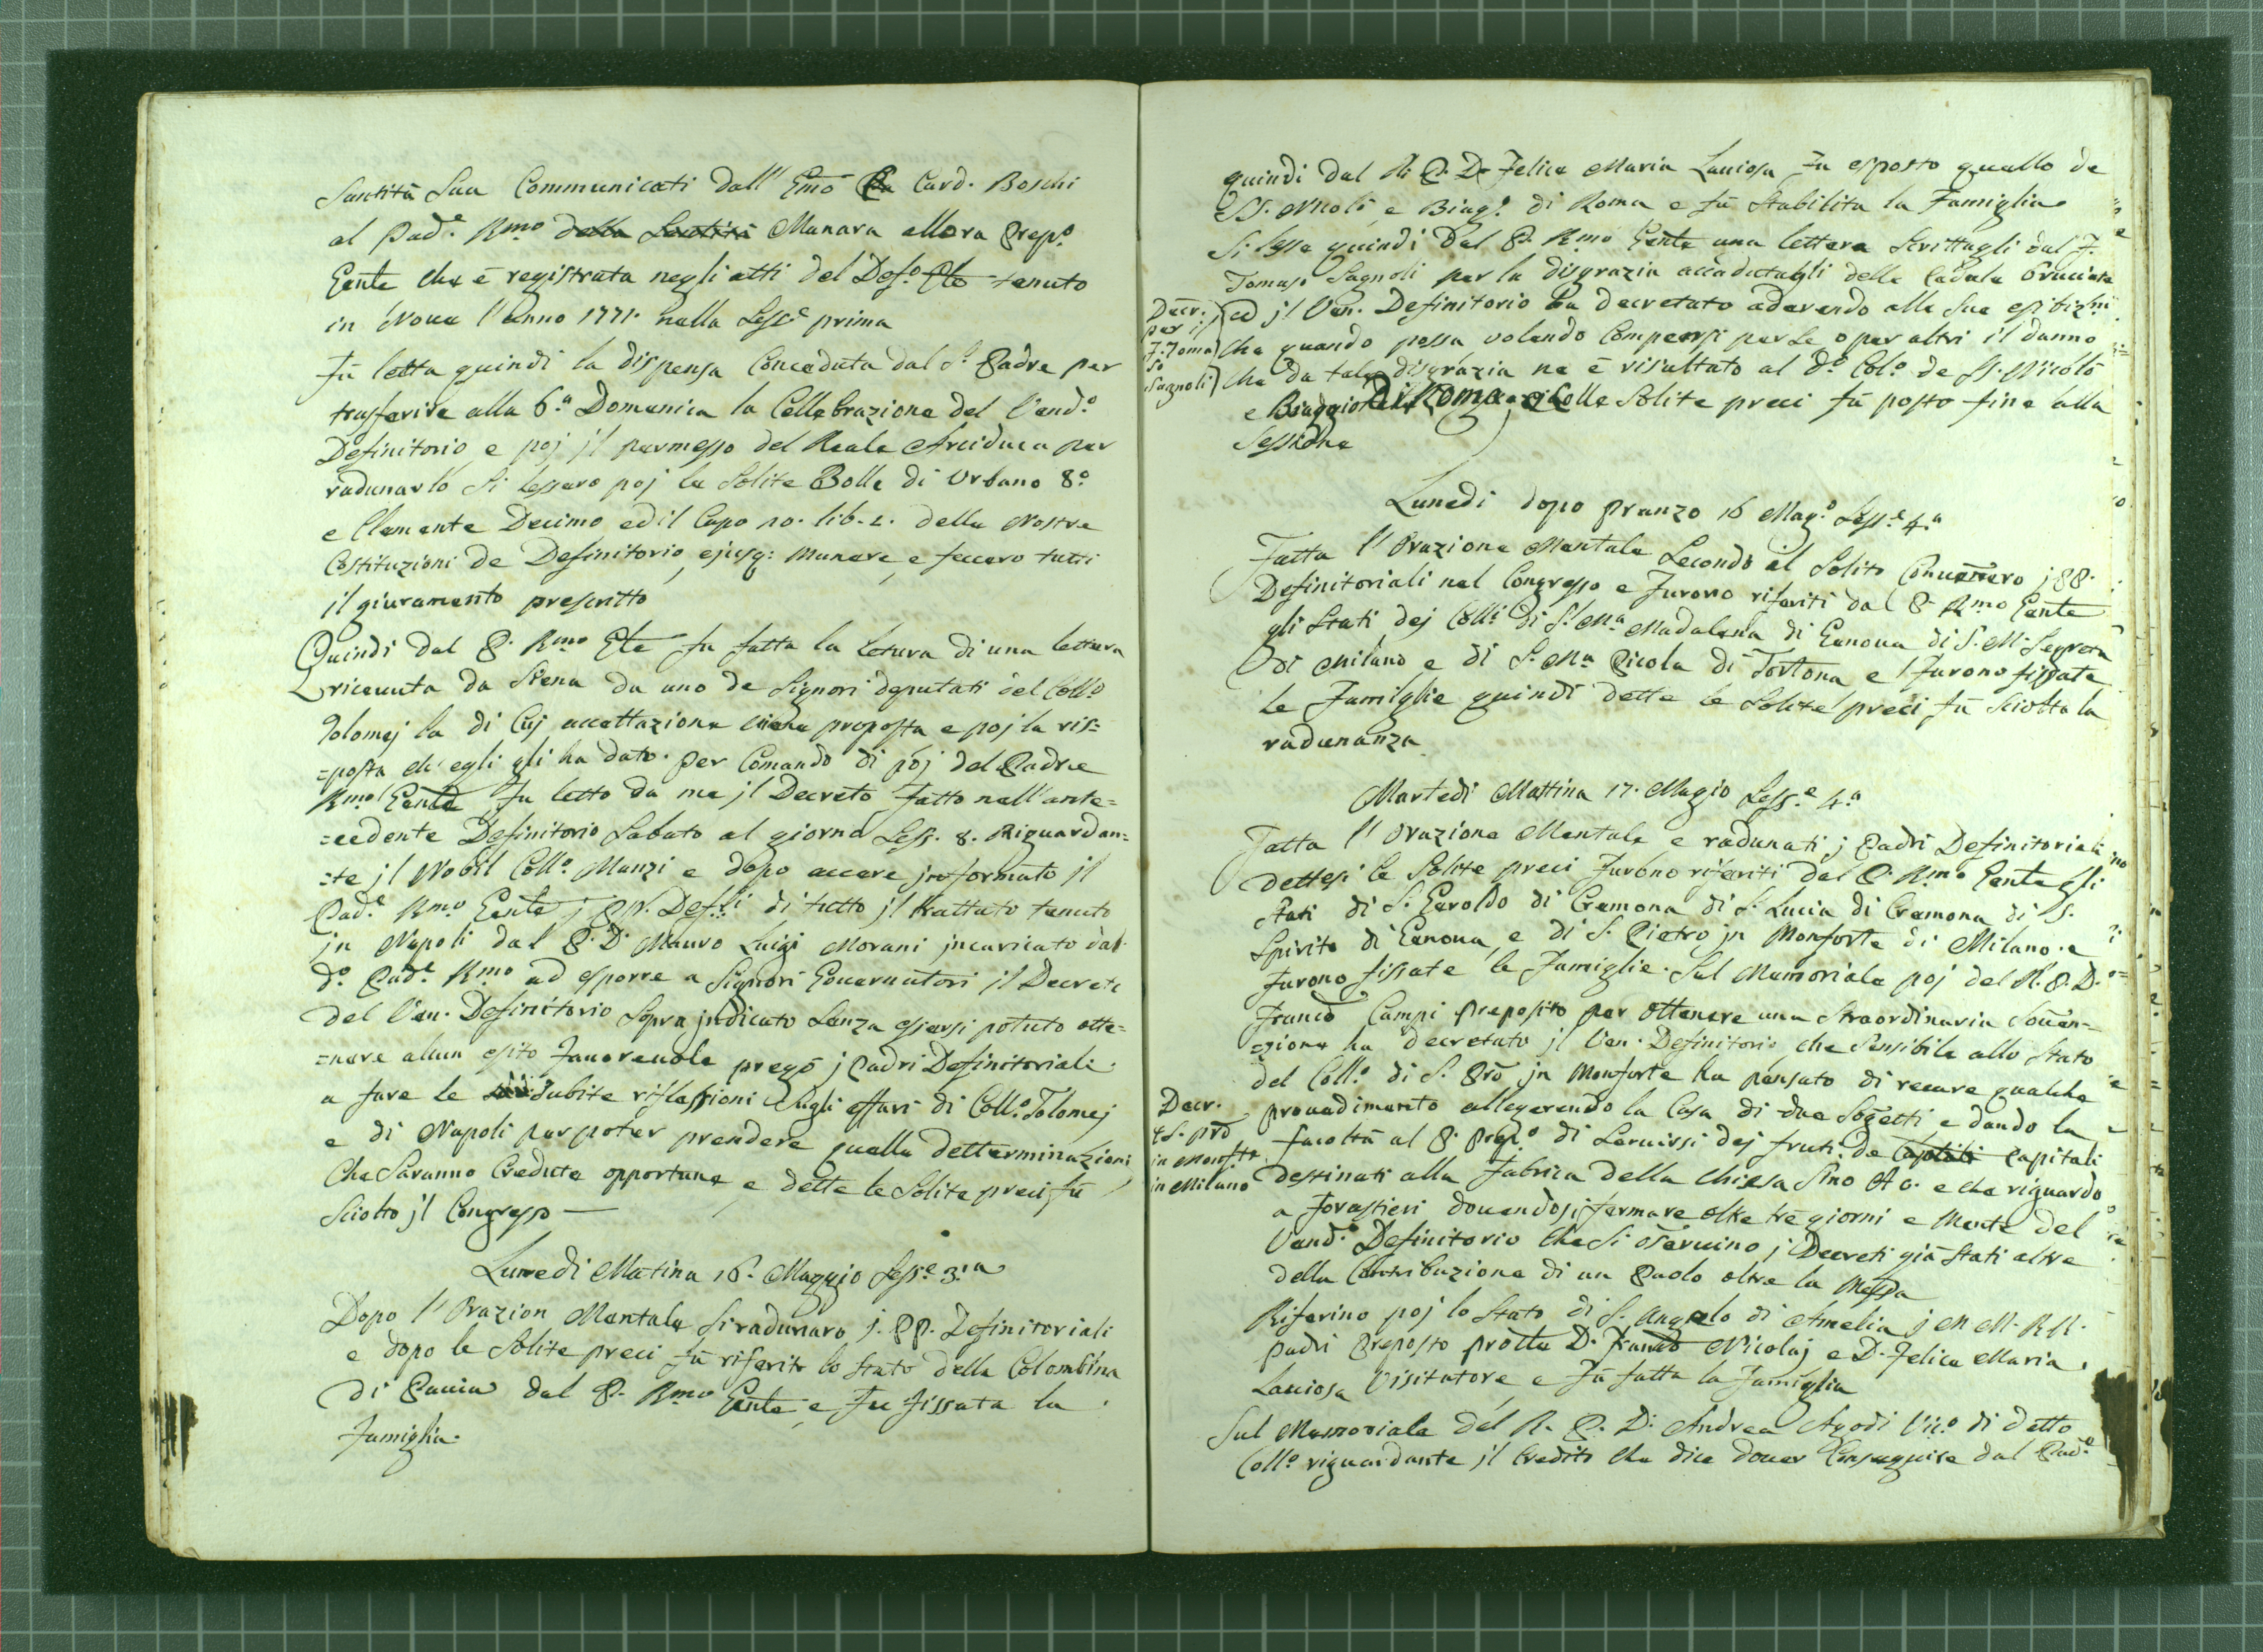 Santità Sua Communicati dall' Emo Card. Boschi
al Pad.e Rmo della Santità Manara allora Prep.o
Gente che è registrata negli atti del Def.o tenuto
in Nova l'anno 1771. nella Sess.e prima
Fù letta quindi la dispensa Conceduta dal S. Padre per
trasferire alla 6.a Domenica la Cellebrazione del Vend.o
Definitorio e poj jl permesso del Reale Arciduca per
radunarlo Si lessero poj le Solite Bolle di Urbano 8.o
e Clemente Decimo ed il Capo 10. lib. 2. delle Nostre
Costituzioni de Definitorio ejusq: munere, e fecero tutti
il giuramento prescritto
Quindi dal P. Rmo Gte fu fatta la letura di una lettera
ricevuta da Siena da uno de Signori deputati del Coll.o
Tolomej la di Cuj accettazione viene proposta e poj la ris=
=posta ch' egli gli ha dato. per Comando di poj del Padre
Rmo Gente fu letto da me jl Decreto fatto nell'ante=
=cedente Definitorio Sabato al giorno Sess. 8. Riguardan=
=te jl Nobil Coll.o Manzi e dopo avere jnformato jl
Pad.e Rmo Gente j PP. Def.li di tutto jl trattato tenuto
jn Napoli dal P. D. Mauro Luigi Morani jncaricato dal
d.o Pad.e Rmo ad esporre a Signori Governatori jl Decreto
del Ven. Definitorio Sopra jndicato Senza essersi potuto otte=
=nere alcun esito favorevole pregò j Padri Definitoriali
a fare le subite riflessioni Sugli affari di Coll.o Tolomej
e di Napoli per poter prendere quelle detterminazioni
Che Saranno Credute opportune, e dette le Solite preci fù
Sciolto jl Congresso —
Lunedi Matina 16. Maggio Sess.e 3.a
Dopo l'Orazion Mentale Si radunaro j. PP. Definitoriali
e dopo le Solite preci fù riferito lo Stato della Colombina
di Pavia dal P. Rmo Gente e fu fissata la
famiglia.
quindi dal R. P. D. Felice Maria Lanciosa fu esposto quello de
SS. Nicolò e Biag.o di Roma e fù Stabilita la Famiglia
Si lesse quindi dal P. Rmo Gente una lettera Scrittagli dal F.
Tomaso Sagnoli per la disgrazia accadutagli delle Cedole bruciate
Decr.
per il
F. Toma
so
Sagnoli
ed jl Ven. Definitorio ha decretato aderendo alle sue esibiz.ni
che quando possa volendo Compensi per Se o per altri il danno
che da tale disgrazia ne è risultato al d.o Col.o de SS. Nicolò
e Biaggio di Roma, e Colle Solite preci fù posto fine alla
Sessione
Lunedi dopo pranzo 16 Mag.o Sess.e 4.a
Fatta l'Orazione Mentale Secondo il Solito Convennero j PP.
Definitoriali nel Congresso e furono riferiti dal P. Rmo Gente
gli Stati dej Colli di S. Ma Madalena di Genova di S. M. Segreta
di Milano e di S. Ma Picola di Tortona e furono fissate
le Famiglie quindi dette le Solite preci fù Sciolta la
radunanza
Martedi Mattina 17. Magio Sess.e 4.a
Fatta l'Orazione Mentale e radunati j Padri Definitoriali
dettesi le Solite preci furono riferiti dal P. Rmo Gente gli
Stati di S. Geroldo di Cremona di S. Lucia di Cremona di S.
Spirito di Genova e di S. Pietro jn Monforte di Milano. e
furono fissate le Famiglie. Sul Memoriale poj del R. P. D.
Franco Campi Preposito per ottenere una Straordinaria Soven=
=zione ha decretato jl Ven. Definitorio che Sensibile allo Stato
del Coll.o di S. Pro jn Monforte ha pensato di recare qualche
Decr.
S. pro
in Monfte
in Milano
provedimento allegerendo la Casa di due Sogetti, e dando la
facoltà al P. Prep.o di Servirsi dej fruti de Capitali
destinati alla fabrica della Chiesa Sino e che riguardo
a forastieri dovendosi fermare oltre trè giorni e Mente del
Vend.o Definitorio che Si osservino j Decreti già Stati altre
della Contribuzione di un Paolo oltre la Messa
Riferino poj lo Stato di S. Angelo di Amelia j M M. R R.
padri Preposto D. Franco Nicolaj e D. Felice Maria
Lanciosa Visitatore, e fù fatta la famiglia
Sul Memoriale del R. P. D. Andrea Agodi Vic.o di detto
Coll.o riguardante jl Credito che dice dover Conseguire dal Pad.e